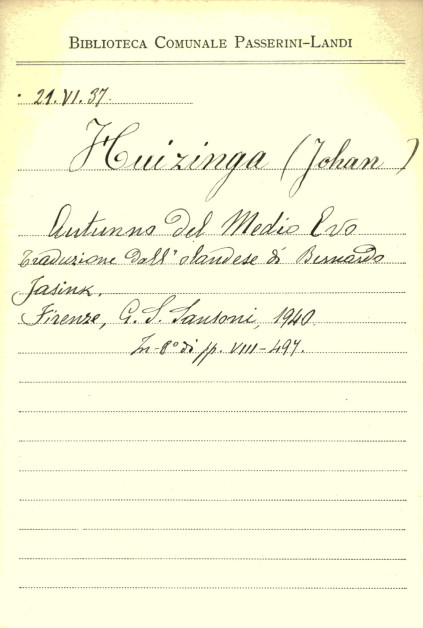 BIBLIOTECA COMUNALE PASSERINI-LANDI
21.VI.37.
Huizinga (Johan)
Autunno del Medio Evo
Traduzione dall'olandese di Bernardo
Jasink.
Firenze, G. S. Sansoni, 1940.
In-8° di pp. VIII-497.